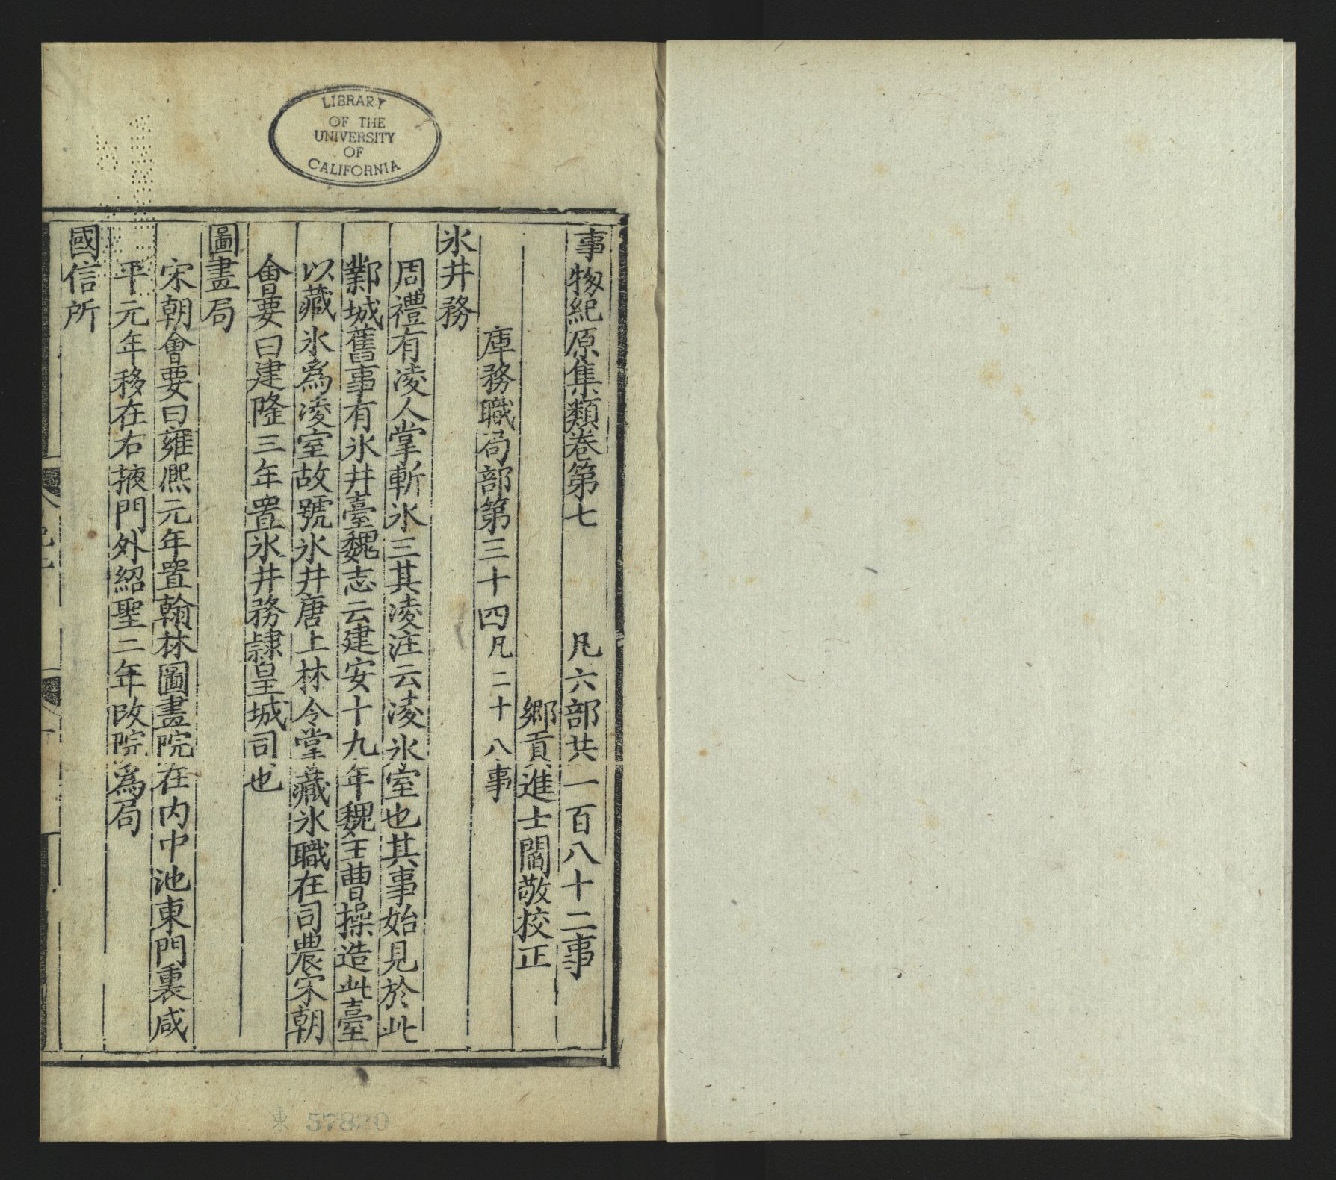 LIBRARY
OF THE
UNIVERSITY
OF
CALIFORNIA
事物紀原集類卷第七　凡六部共一百八十二事
鄉貢進士閻敬校正
庫務職局部第三十四凡二十八事
氷井務
周禮有凌人掌斬氷三其凌注云凌氷室也其事始見於此
鄴城舊事有氷井臺魏志云建安十九年魏王曹操造此臺
以藏氷爲凌室故號氷井唐上林令掌藏氷職在司農宋朝
會要曰建隆三年置氷井務隷皇城司也
圖畫局
宋朝會要曰雍熈元年置翰林圖畫院在内中池東門裏咸
平元年移在右掖門外紹聖二年改院爲局
國信所
東 57820